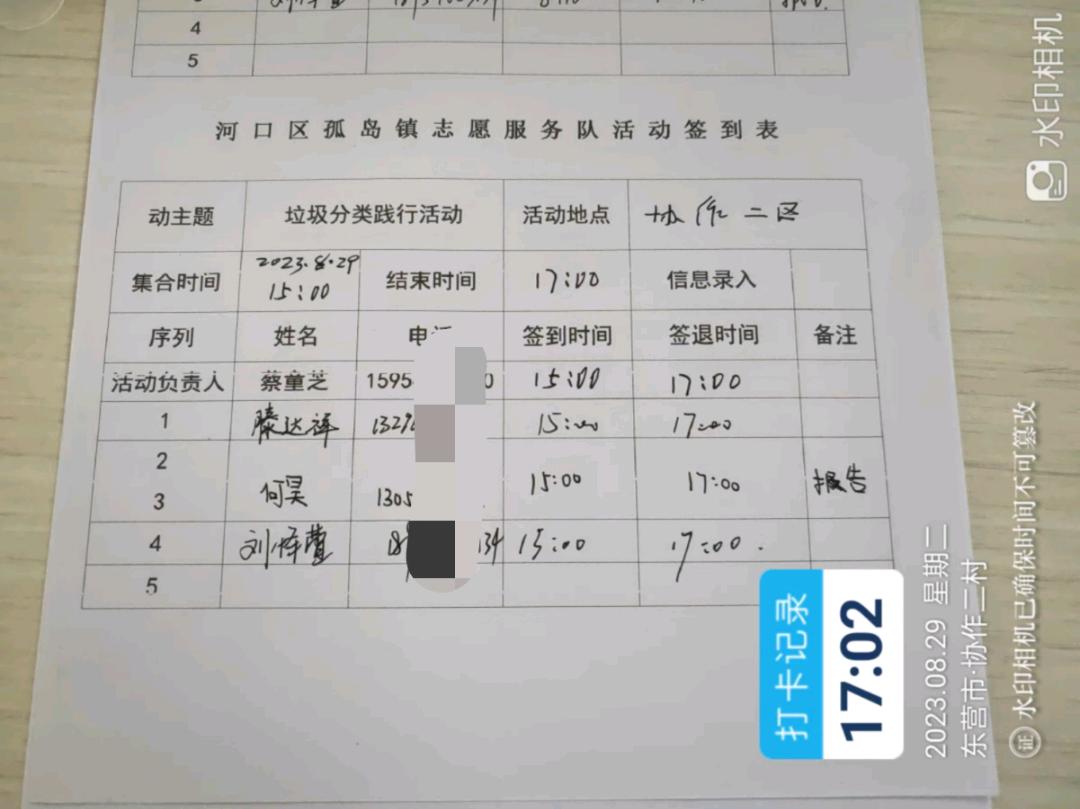 4
5
河口区孤岛镇志愿服务队活动签到表
动主题 垃圾分类践行活动 活动地点 协作二区
集合时间 2023.8.29 15:00 结束时间 17:00 信息录入
序列 姓名 电 签到时间 签退时间 备注
活动负责人 蔡童芝 1595 0 15:00 17:00
1 滕达祥 1329 15:00 17:00
2
3 何昊 1305 15:00 17:00 报告
4 刘 18 134 15:00 17:00.
5
打卡记录
17:02
2023.08.29 星期二
东营市·协作二村
证 水印相机已确保时间不可篡改
水印相机